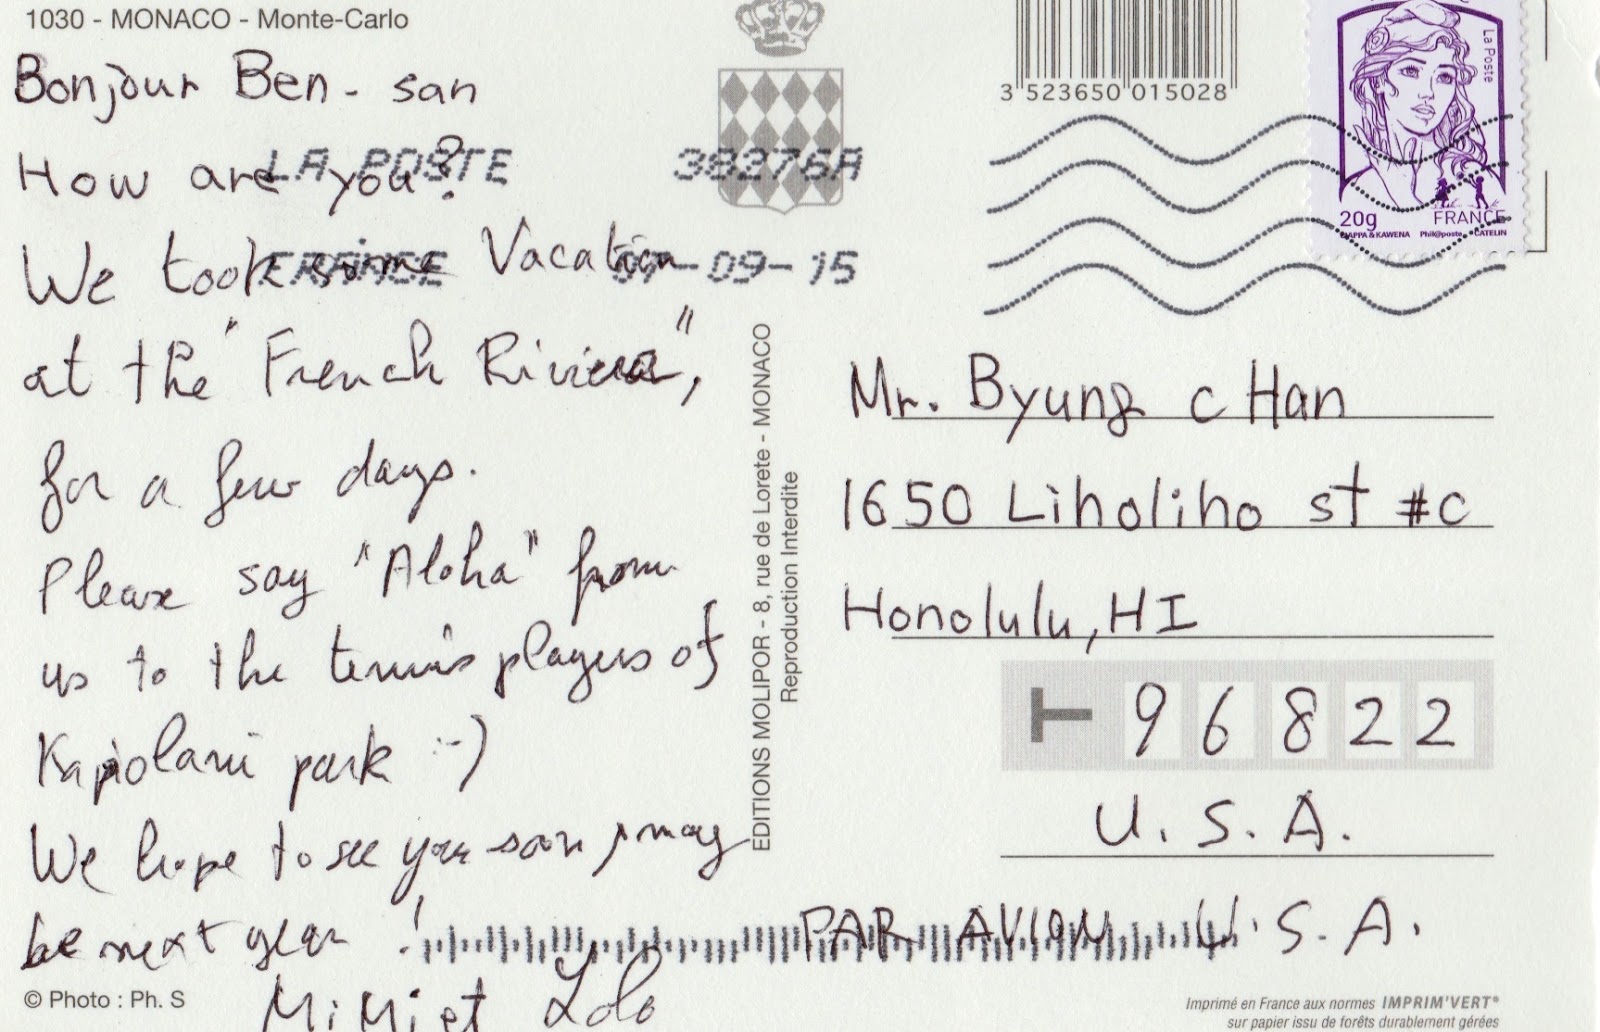 1030 - MONACO - Monte-Carlo
Bonjour Ben-san
How are you?
We took some Vacation
at the "French Riviera",
for a few days.
Please say "Aloha" from
us to the tennis players of
Kapiolani park :-)
We hope to see you soon, may
be next year!
Mimi et Lolo
© Photo : Ph. S
LA POSTE 38276A
FRANCE -09-15
EDITIONS MOLIPOR - 8, rue de Lorete - MONACO
Reproduction Interdite
3 523650 015028
La Poste
20g FRANCE
CIAPPA & KAWENA Phil@poste CATELIN
Mr. Byung C Han
1650 Liholiho st #C
Honolulu, HI
T 96822
U.S.A.
PAR AVION U.S.A.
Imprimé en France aux normes IMPRIM'VERT®
sur papier issu de forêts durablement gérées